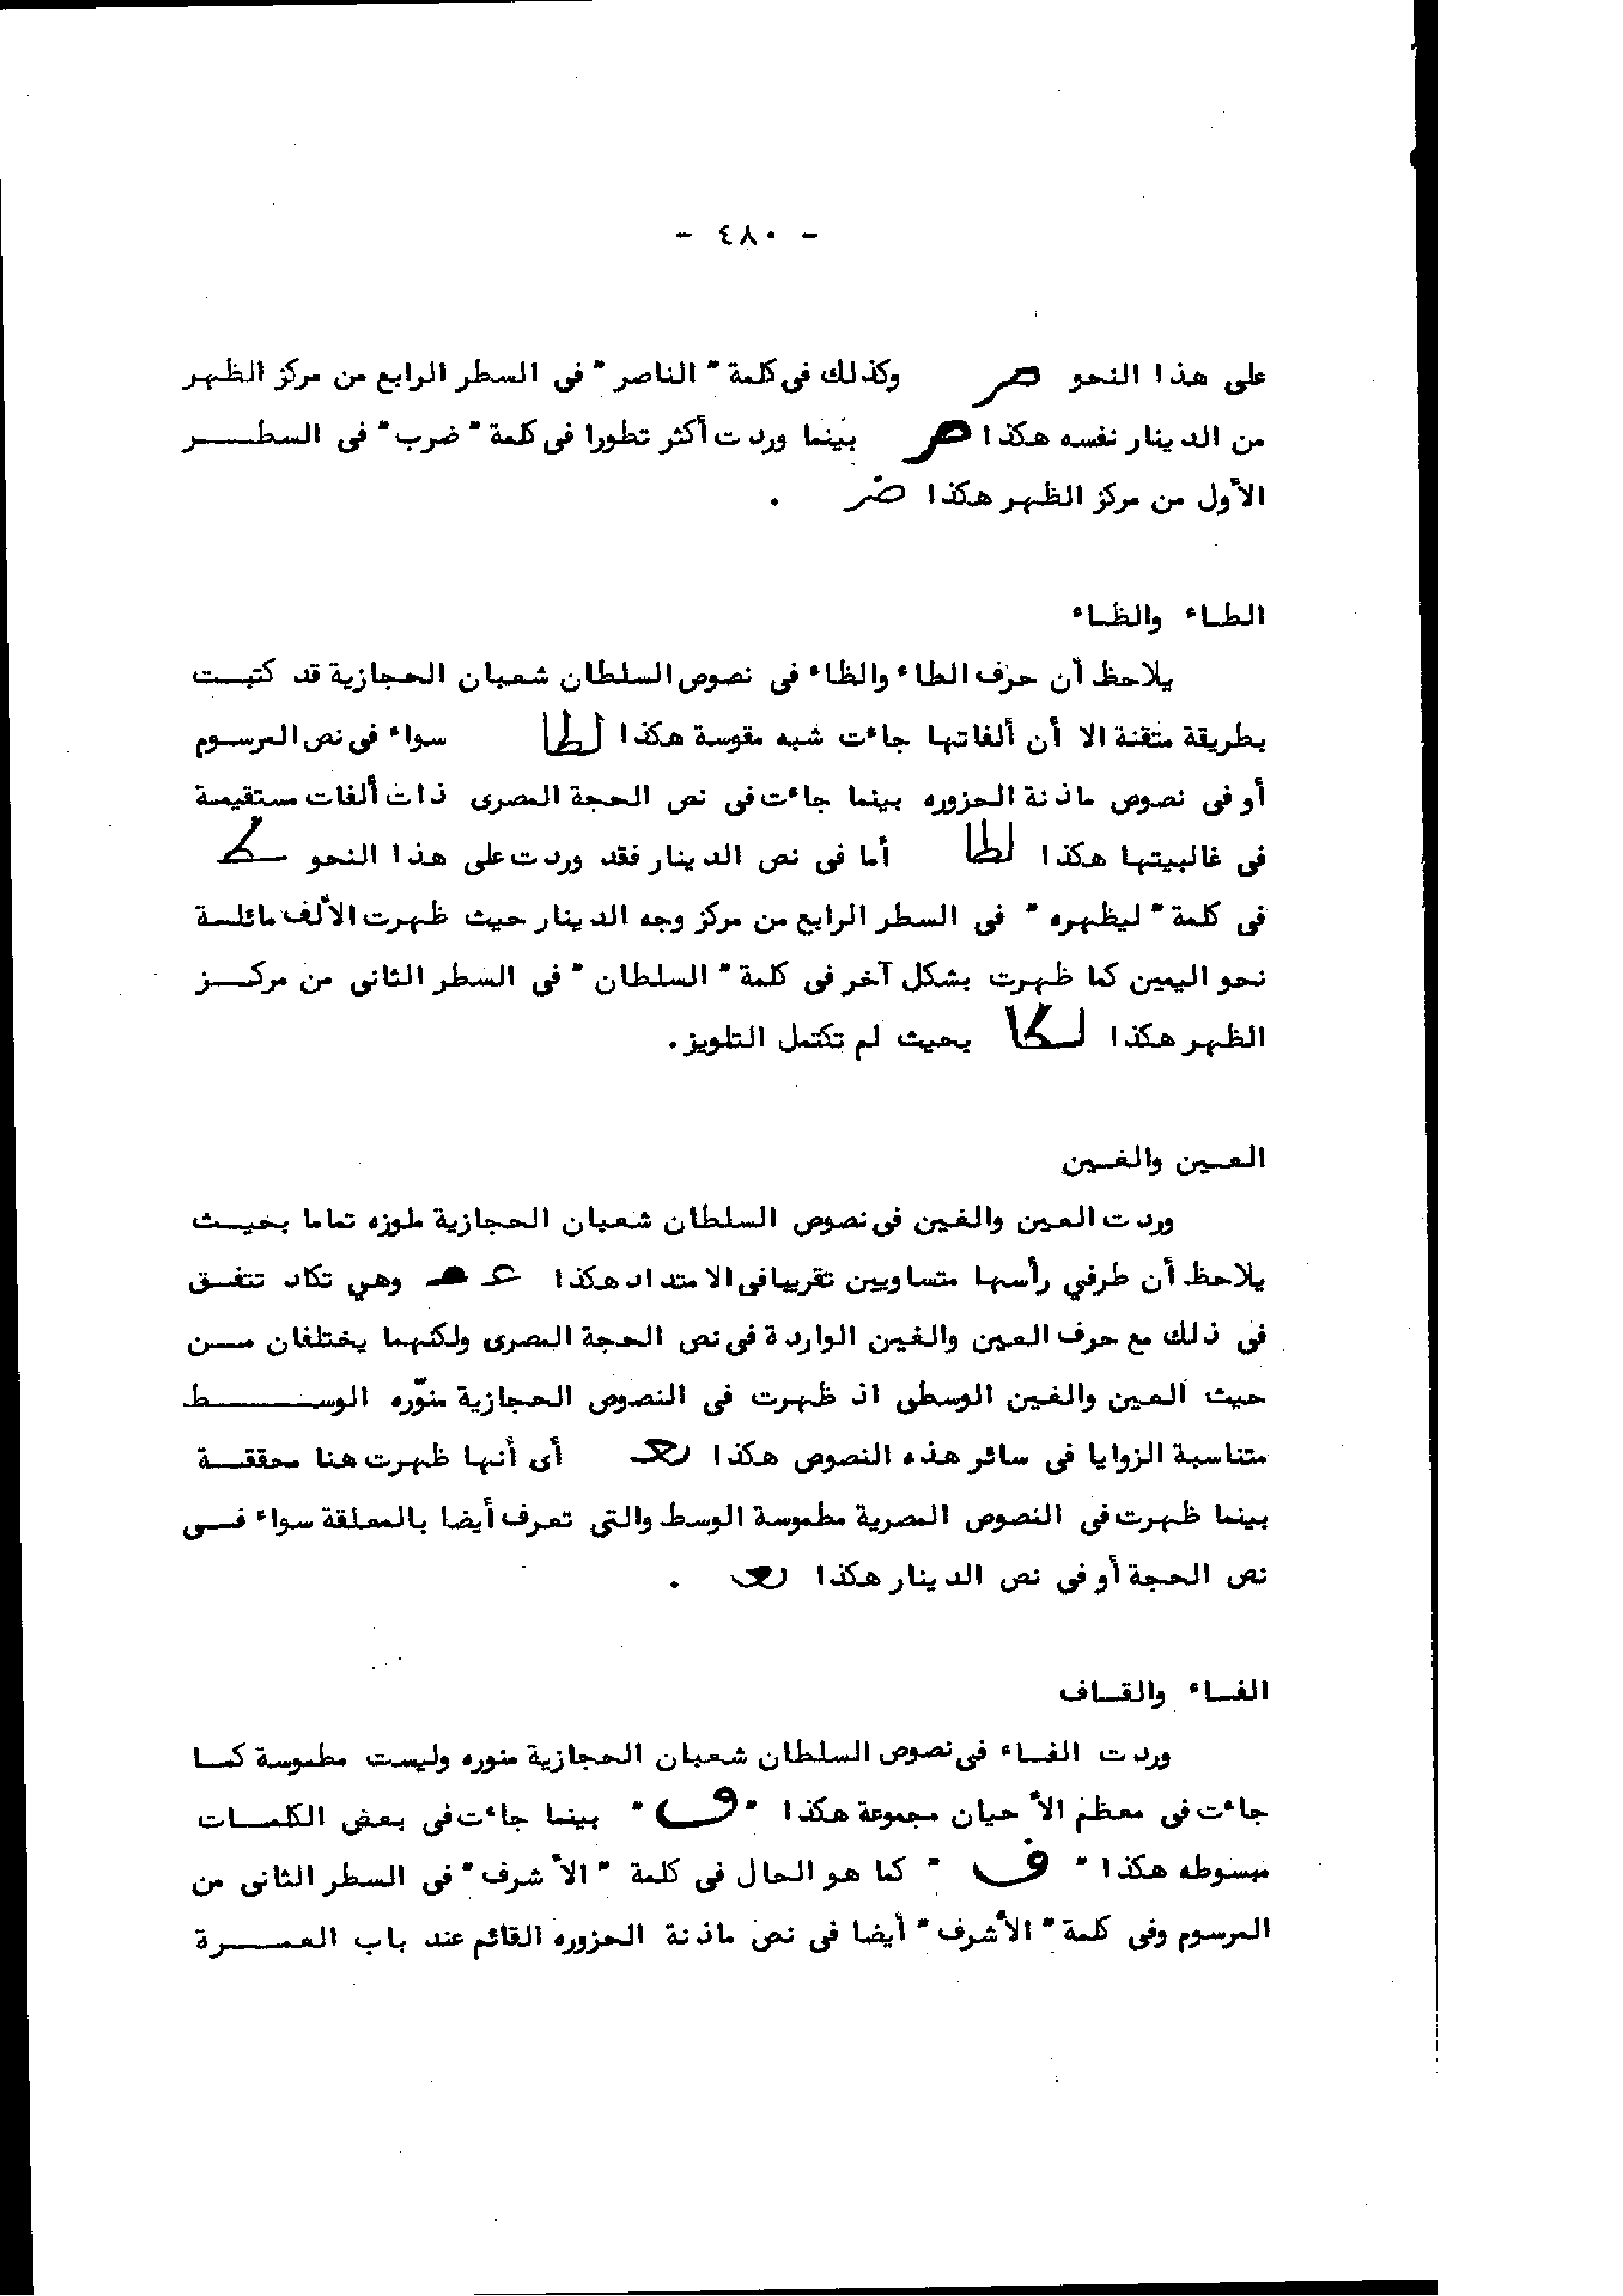 - ٤٨٠ -
على هذا النحو صر وكذلك فى كلمة " الناصر " فى السطر الرابع من مركز الظهر
من الدينار نفسه هكذا صر بينما وردت أكثر تطورا فى كلمة " ضرب " فى السطــــر
الأول من مركز الظهر هكذا ضر .
الطــاء والظــاء
يلاحظ أن حرف الطاء والظاء فى نصوص السلطان شعبان الحجازية قد كتبــت
بطريقة متقنة الا أن ألفاتها جاءت شبه مقوسة هكذا لطا سواء فى نص المرسـوم
أو فى نصوص ماذنة الحزوره بينما جاءت فى نص الحجة المصرى ذات ألفات مستقيمـة
فى غالبيتها هكذا لطا أما فى نص الدينار فقد وردت على هذا النحو
فى كلمة " ليظهره " فى السطر الرابع من مركز وجه الدينار حيث ظهرت الألف مائلـة
نحو اليمين كما ظهرت بشكل آخر فى كلمة " السلطان " فى السطر الثانى من مركــز
الظهر هكذا لطا بحيث لم تكتمل التلويز .
العــين والغــين
وردت العين والغين فى نصوص السلطان شعبان الحجازية ملوزه تماما بحيــث
يلاحظ أن طرفي رأسها متساويين تقريبا فى الامتداد هكذا وهي تكاد تتفــق
فى ذلك مع حرف العين والغين الواردة فى نص الحجة المصرى ولكنهما يختلفان مــن
حيث العين والغين الوسطى اذ ظهرت فى النصوص الحجازية منوّره الوســــــط
متناسبة الزوايا فى سائر هذه النصوص هكذا أى أنها ظهرت هنا محققــة
بينما ظهرت فى النصوص المصرية مطموسة الوسط والتي تعرف أيضا بالمعلقة سواء فــى
نص الحجة أو فى نص الدينار هكذا .
الفــاء والقــاف
وردت الفــاء فى نصوص السلطان شعبان الحجازية منوره وليست مطموسة كمــا
جاءت فى معظم الأحيان مجموعة هكذا " ف " بينما جاءت فى بعض الكلمــات
مبسوطه هكذا " ف " كما هو الحال فى كلمة " الأشرف " فى السطر الثانى من
المرسوم وفى كلمة " الأشرف " أيضا فى نص ماذنة الحزوره القائم عند باب العمــــرة